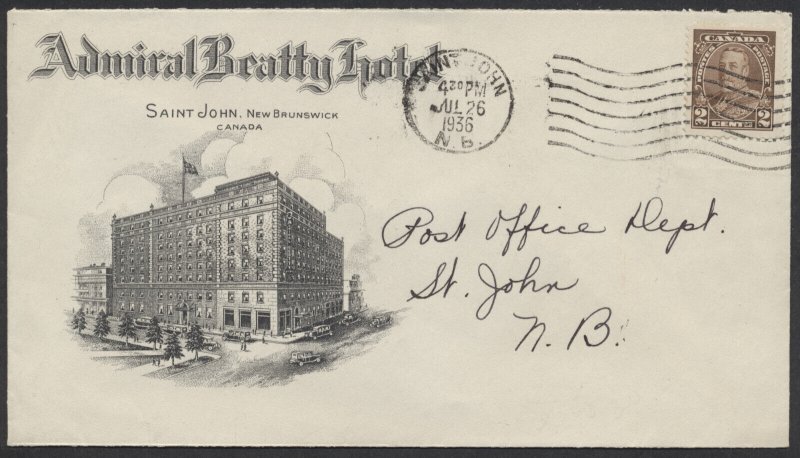 Admiral Beatty Hotel
SAINT JOHN, NEW BRUNSWICK
CANADA
SAINT JOHN
4 20 PM
JUL 26
1936
N. B.
CANADA
POSTES POSTAGE
2 CENTS 2
Post Office Dept.
St. John
N. B.